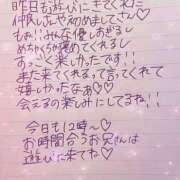 昨日も遊びにきてくれた
仲良しさや初めましてさん♡
もぉ!!みんな優しおぎるし
めちゃくちゃ褒めてくれるし
すっごく楽しかったです!!
また来てくれるって言ってくれて
嬉しかったなぁ♡
会えるの楽しみにしてるね!!
今日も12時〜♡
お時間合うお兄さんは
遊びに来てね♡